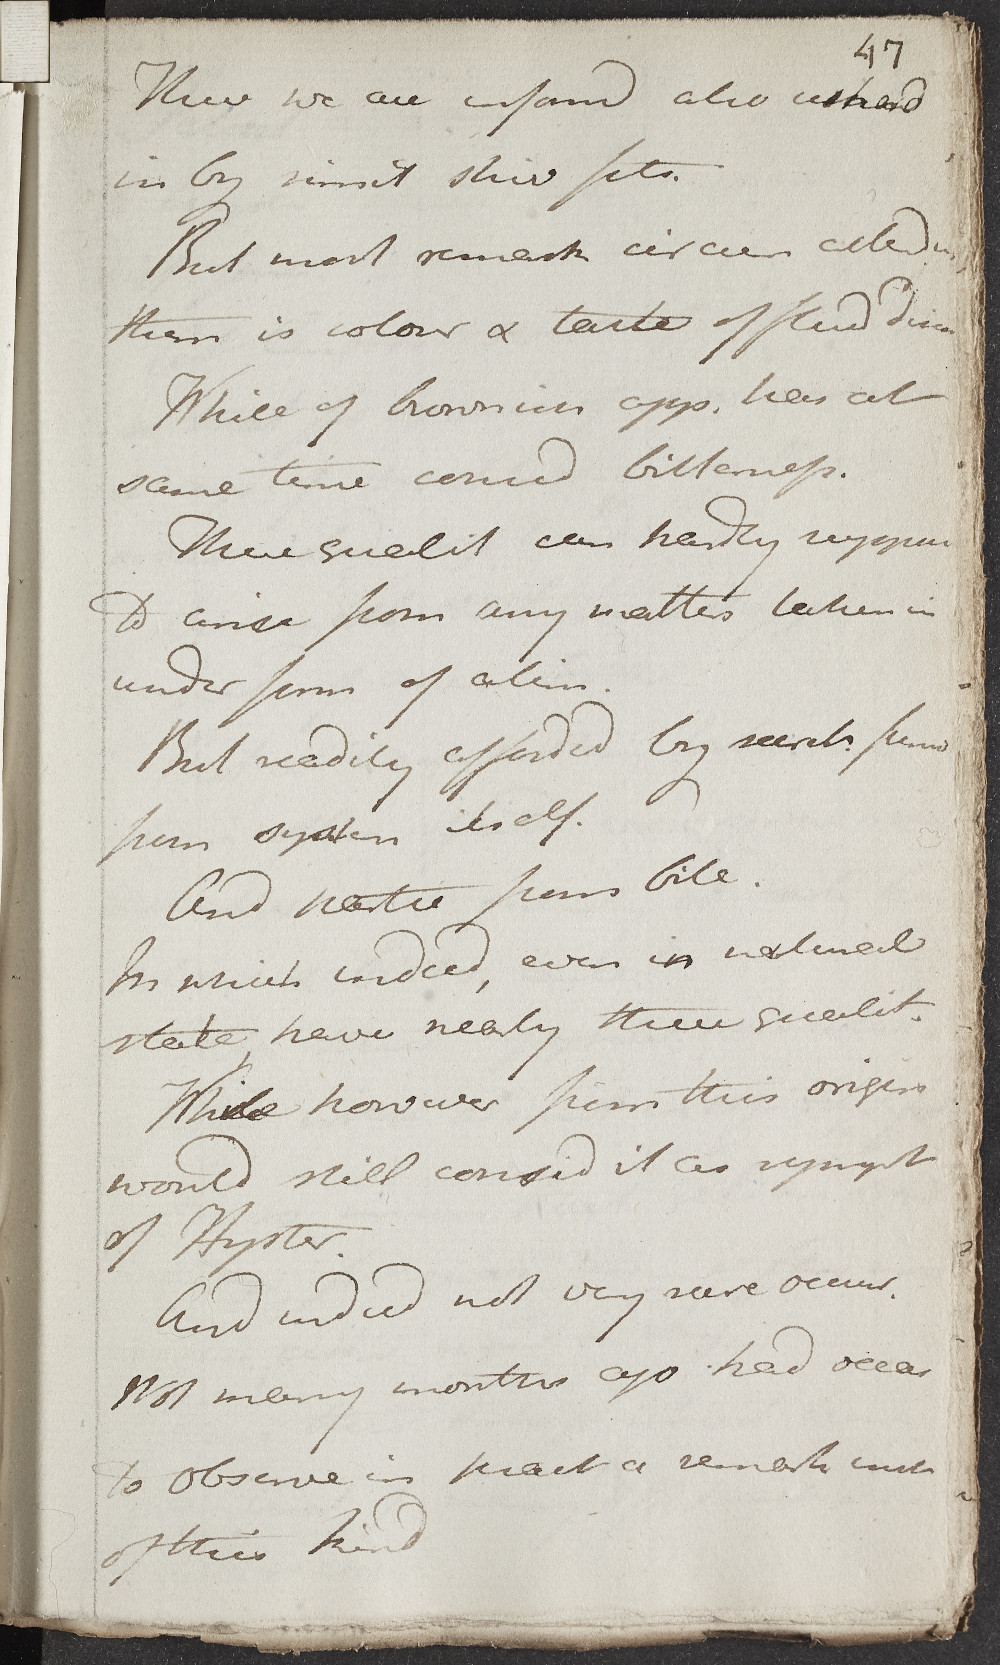 47
These we are inform'd also usherd
in by simil shiv fits.
But most remark circum attend
them is colour & taste of fluid
While of brownish app. has at
same time consid bitterness.
These qualit can hardly suppose
to arise from any matters taken in
under form of alim.
But readily afforded by secret. from
from system itself.
And partic from bile.
In which indeed, even in natural
state, have nearly these qualit.
While however from this origin
would still consid it as sympt
of Hyster.
And indeed not very rare occur.
Not many months ago had occas
to observe in pract a remark inst
of this kind